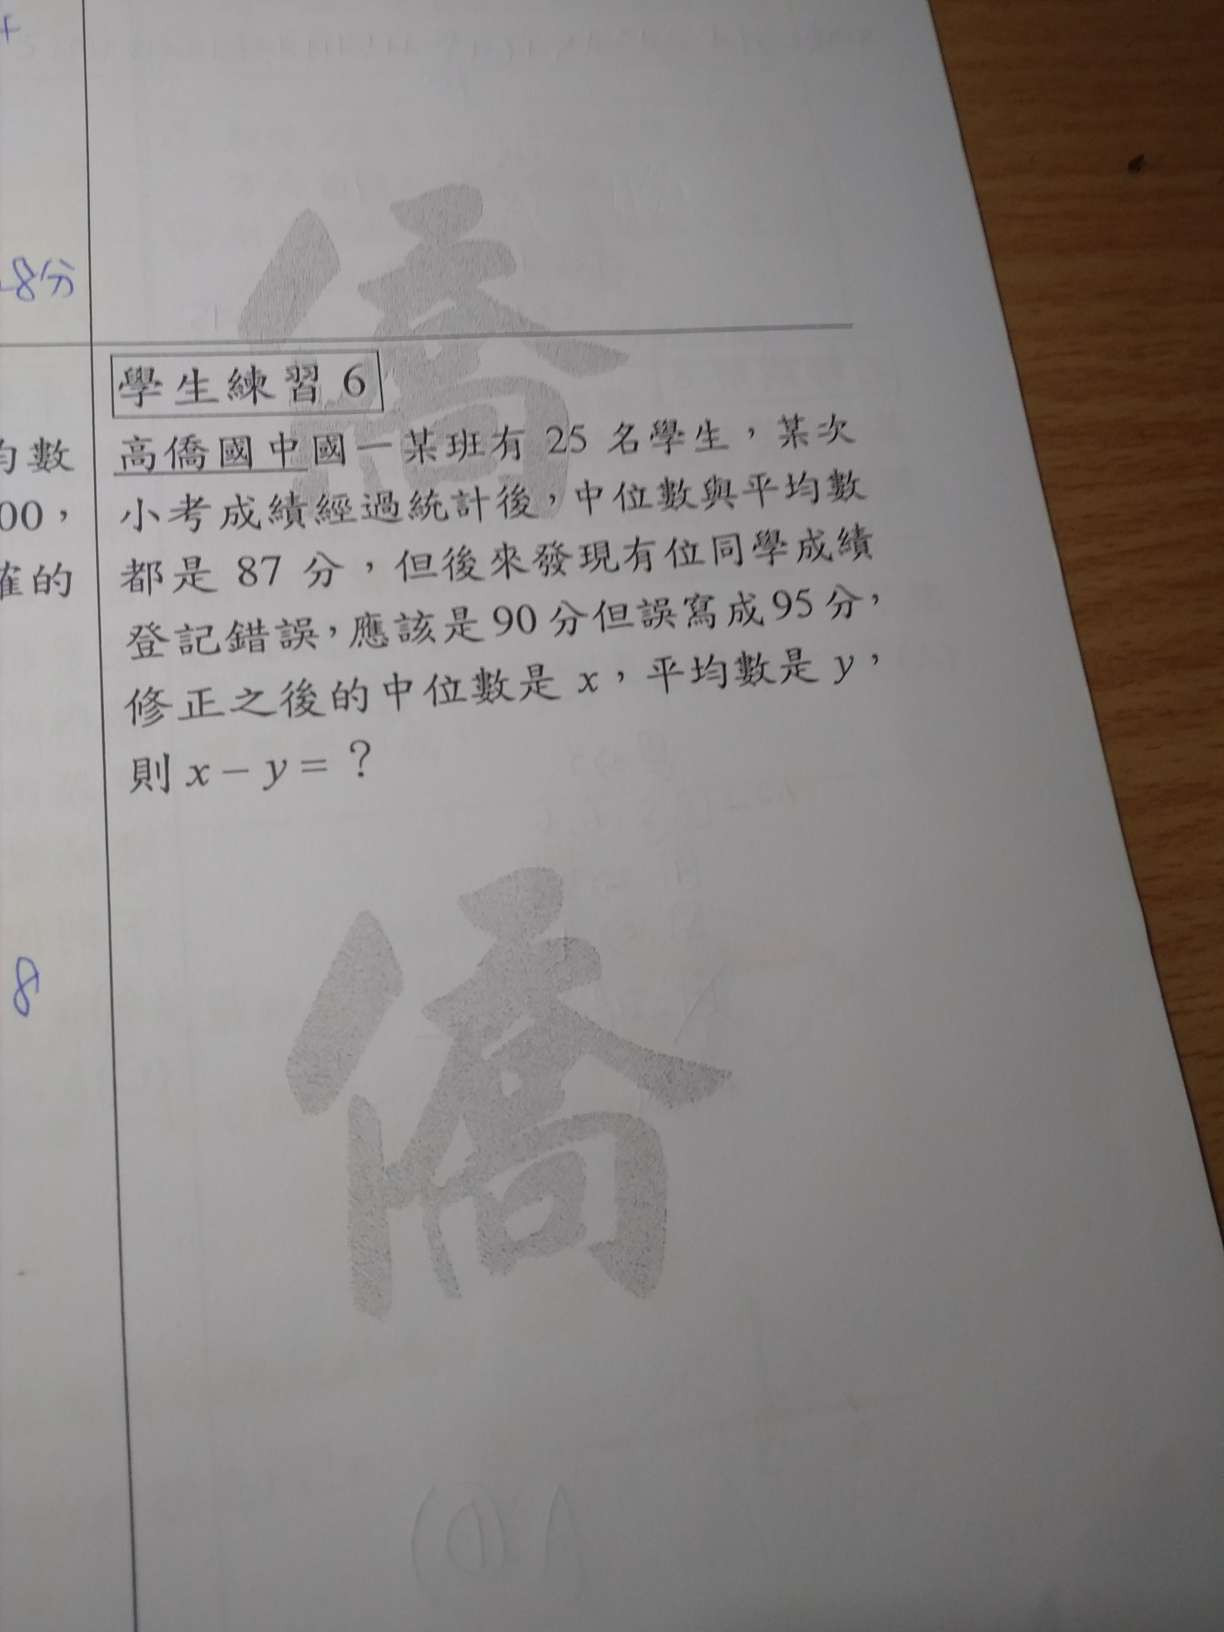 8分
學生練習 6
均數
高僑國中國一某班有 25 名學生，某次
00，
小考成績經過統計後，中位數與平均數
確的
都是 87 分，但後來發現有位同學成績
登記錯誤，應該是 90 分但誤寫成 95 分，
修正之後的中位數是 x，平均數是 y，
則 x – y = ？
8
僑
僑